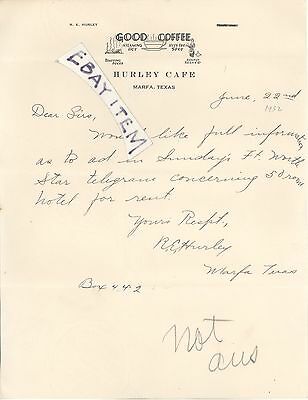 R. E. HURLEY
GOOD COFFEE
STEAMING HOT
HITS THE SPOT
HURLEY CAFE
MARFA, TEXAS
EBAY ITEM
June, 22nd
1932
Dear Sirs,
Would like full information
as to ad in Sundays Ft. Worth
Star telegram concerning 50 room
hotel for rent.
Yours Respt,
R.E. Hurley
Marfa Texas
Box 442
not
ans